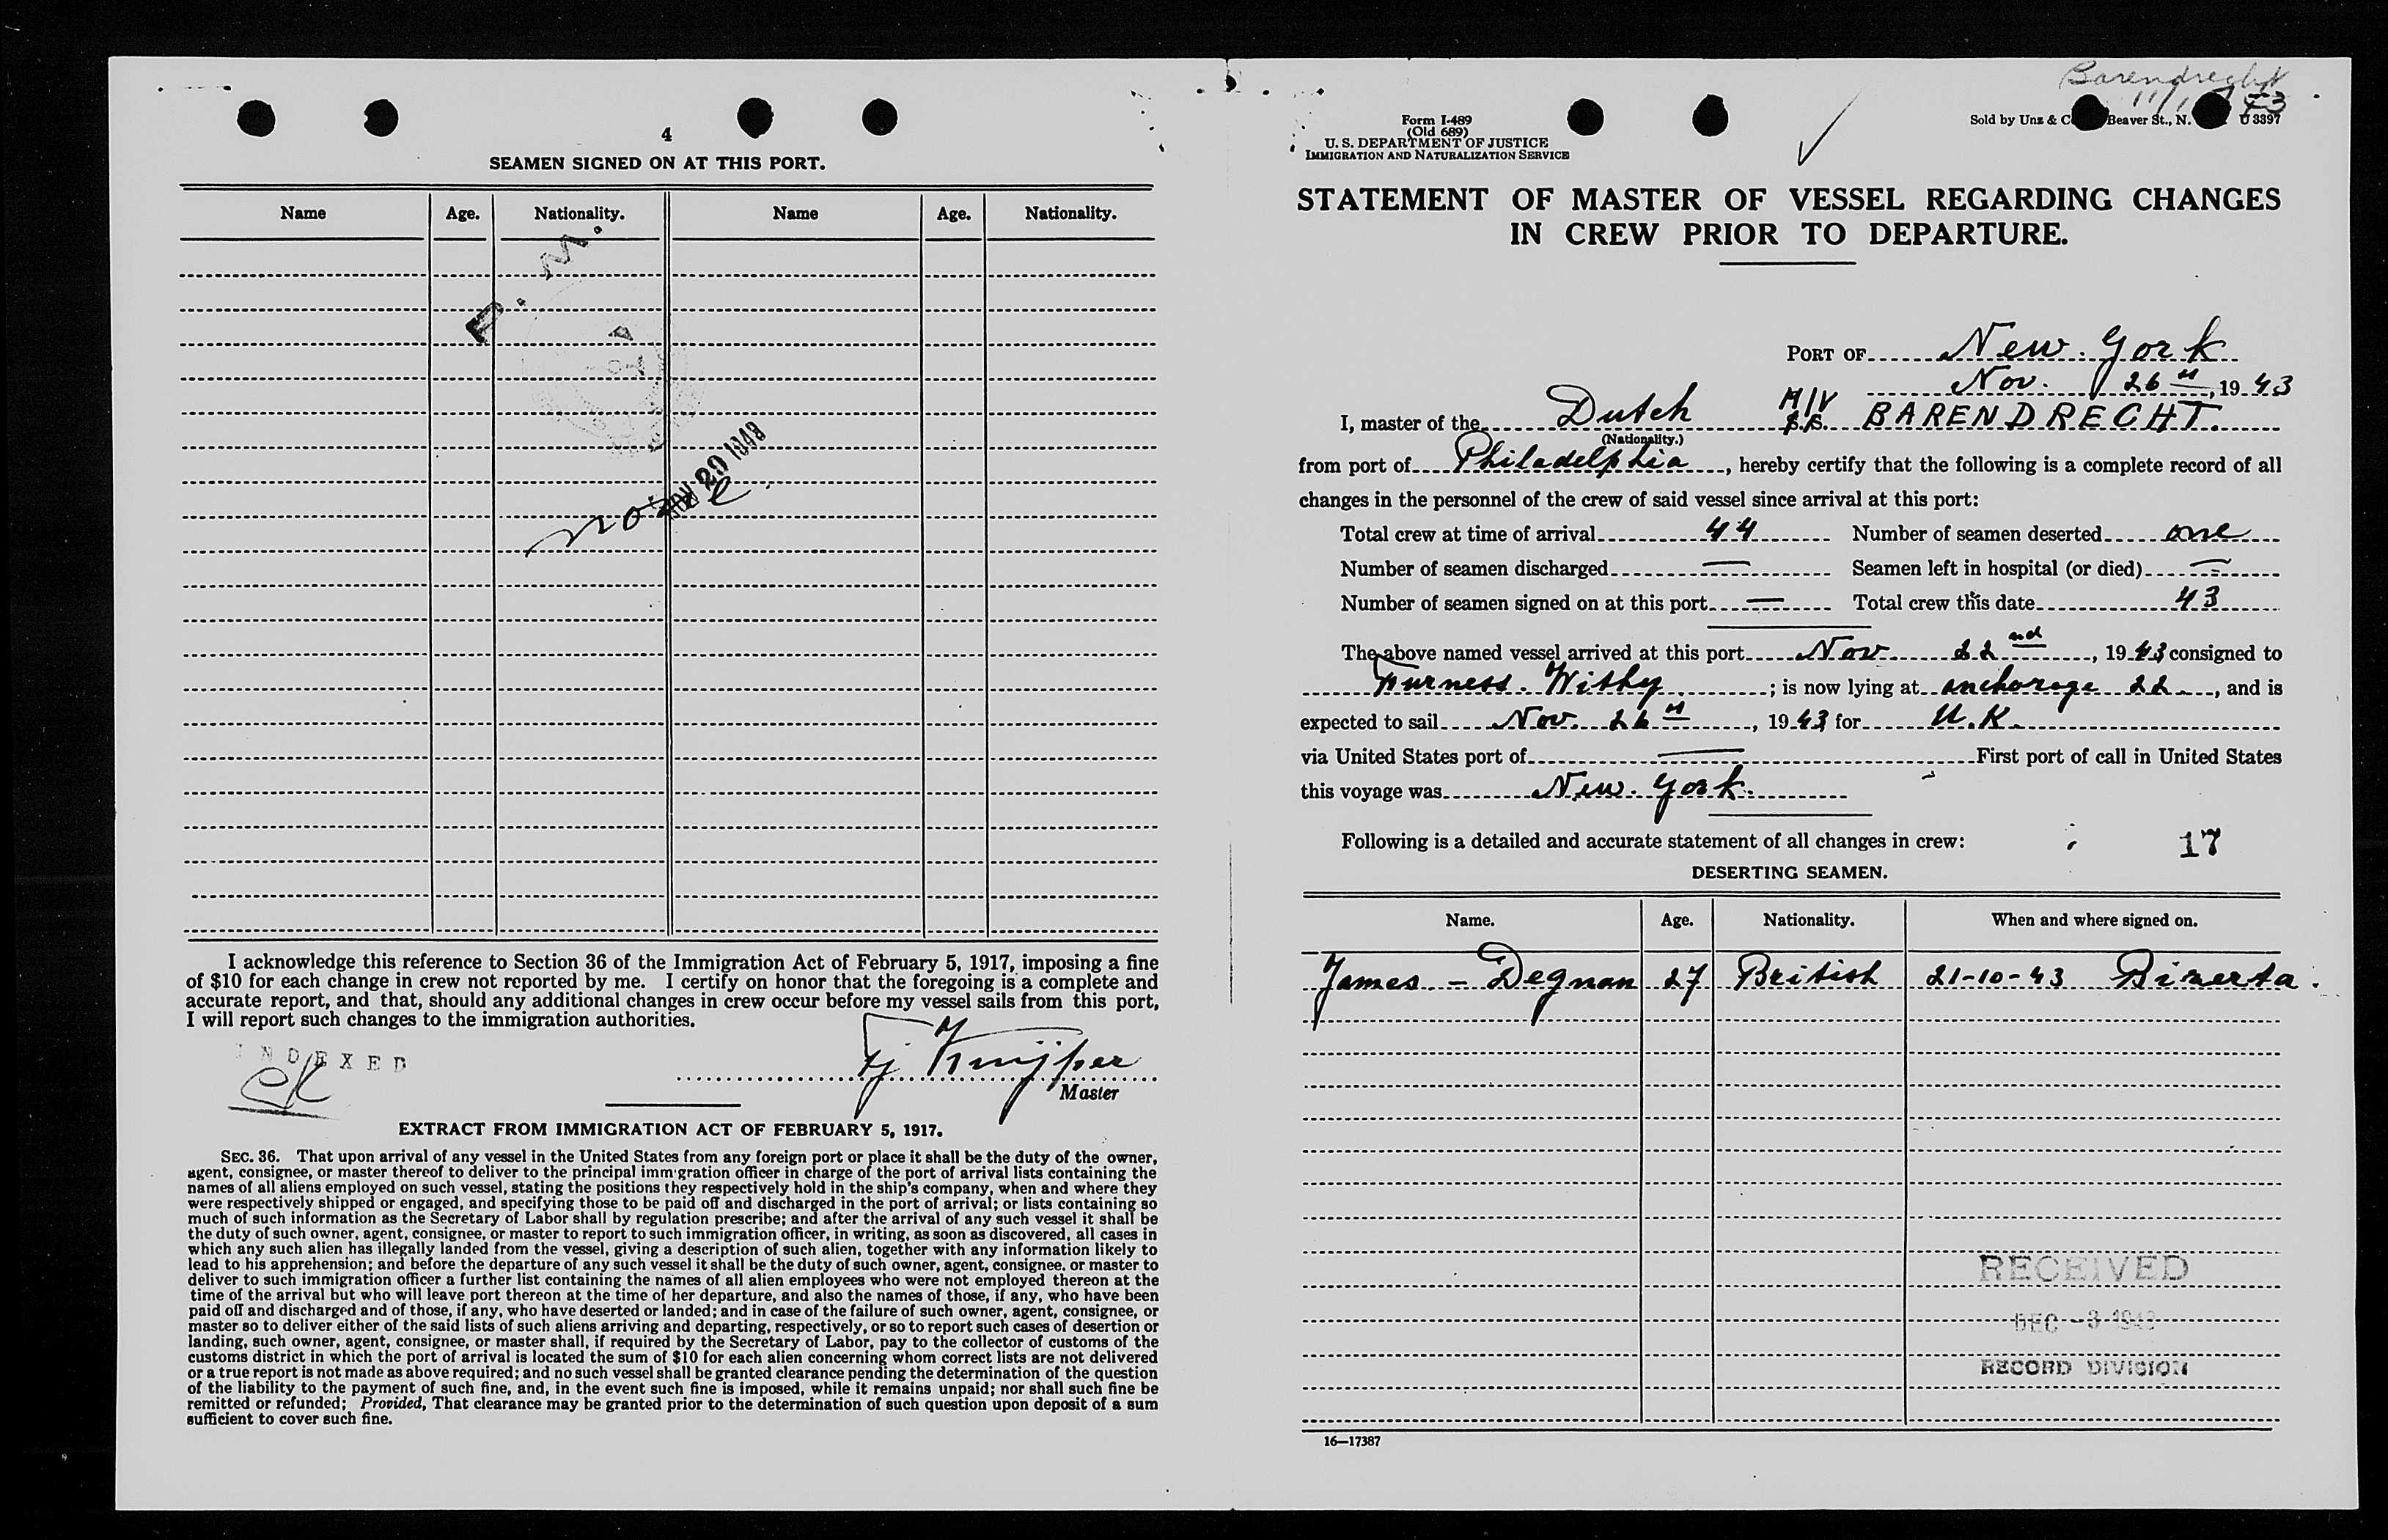 4
SEAMEN SIGNED ON AT THIS PORT.
Name Age. Nationality. Name Age. Nationality.
P. M.
NOV 29 1943
none
I acknowledge this reference to Section 36 of the Immigration Act of February 5, 1917, imposing a fine
of $10 for each change in crew not reported by me. I certify on honor that the foregoing is a complete and
accurate report, and that, should any additional changes in crew occur before my vessel sails from this port,
I will report such changes to the immigration authorities.
INDEXED
Tj Kuijper
Master
EXTRACT FROM IMMIGRATION ACT OF FEBRUARY 5, 1917.
SEC. 36. That upon arrival of any vessel in the United States from any foreign port or place it shall be the duty of the owner,
agent, consignee, or master thereof to deliver to the principal immigration officer in charge of the port of arrival lists containing the
names of all aliens employed on such vessel, stating the positions they respectively hold in the ship's company, when and where they
were respectively shipped or engaged, and specifying those to be paid off and discharged in the port of arrival; or lists containing so
much of such information as the Secretary of Labor shall by regulation prescribe; and after the arrival of any such vessel it shall be
the duty of such owner, agent, consignee, or master to report to such immigration officer, in writing, as soon as discovered, all cases in
which any such alien has illegally landed from the vessel, giving a description of such alien, together with any information likely to
lead to his apprehension; and before the departure of any such vessel it shall be the duty of such owner, agent, consignee, or master to
deliver to such immigration officer a further list containing the names of all alien employees who were not employed thereon at the
time of the arrival but who will leave port thereon at the time of her departure, and also the names of those, if any, who have been
paid off and discharged and of those, if any, who have deserted or landed; and in case of the failure of such owner, agent, consignee, or
master so to deliver either of the said lists of such aliens arriving and departing, respectively, or so to report such cases of desertion or
landing, such owner, agent, consignee, or master shall, if required by the Secretary of Labor, pay to the collector of customs of the
customs district in which the port of arrival is located the sum of $10 for each alien concerning whom correct lists are not delivered
or a true report is not made as above required; and no such vessel shall be granted clearance pending the determination of the question
of the liability to the payment of such fine, and, in the event such fine is imposed, while it remains unpaid; nor shall such fine be
remitted or refunded; Provided, That clearance may be granted prior to the determination of such question upon deposit of a sum
sufficient to cover such fine.
Barendrecht
Form I-489
(Old 689)
U. S. DEPARTMENT OF JUSTICE
IMMIGRATION AND NATURALIZATION SERVICE
Sold by Unz & C Beaver St., N. U 3397
STATEMENT OF MASTER OF VESSEL REGARDING CHANGES
IN CREW PRIOR TO DEPARTURE.
PORT OF New York
Nov. 26th, 1943
I, master of the Dutch M/V S.S. BARENDRECHT.
(Nationality.)
from port of Philadelphia, hereby certify that the following is a complete record of all
changes in the personnel of the crew of said vessel since arrival at this port:
Total crew at time of arrival 44 Number of seamen deserted one
Number of seamen discharged — Seamen left in hospital (or died) —
Number of seamen signed on at this port — Total crew this date 43
The above named vessel arrived at this port Nov 22nd, 1943 consigned to
Furness. Withy; is now lying at anchorage 22, and is
expected to sail Nov. 26th, 1943 for U.K.
via United States port of — First port of call in United States
this voyage was New York.
Following is a detailed and accurate statement of all changes in crew:
17
DESERTING SEAMEN.
Name. Age. Nationality. When and where signed on.
James - Degnan 27 British 21-10-43 Bizerta.
RECEIVED
DEC -3 1943
RECORD DIVISION
16—17387